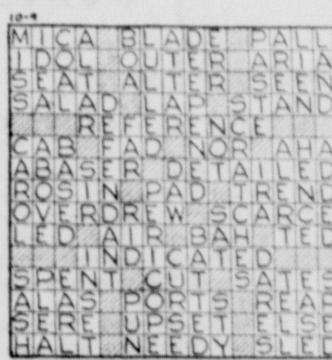 10-9
MICA BLADE PALL
IDOL OUTER ARIA
SEAT ALTER SEEN
SALAD LAP STAND
REFERENCE
CAB FAD NOR AHA
ABASER DETAILED
ROSIN PAD TREND
OVERDREW SCARCE
LED AIR BAH TED
INDICATED
SPENT CUT SATES
ALAS PORTS REAR
SERE UPSET ELSE
HALT NEEDY SLED